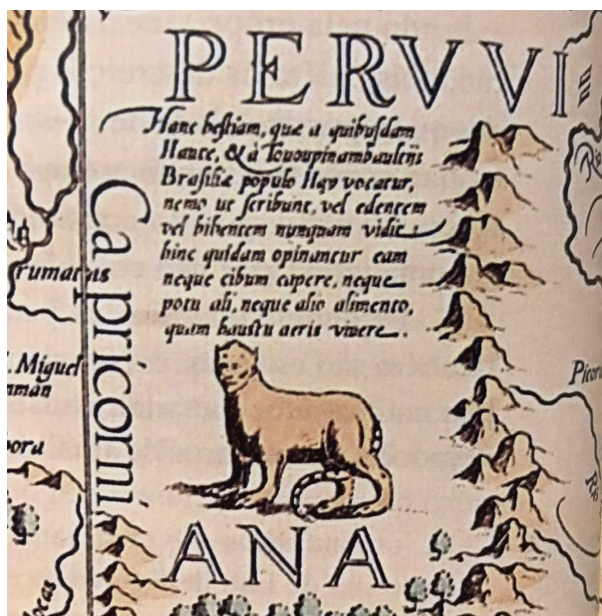 PERVVI
Hanc bestiam, quæ a quibusdam
Haute, & à Tououpinambaultiis
Brasiliæ populo Hay vocatur,
nemo ut scribunt, vel edentem
vel bibentem nunquam vidit :
hinc quidam opinantur eam
neque cibum capere, neque
potu ali, neque alio alimento,
quam haustu aeris vivere.
Capricorni
rumatas
S. Miguel
Picora
Rio
ANA